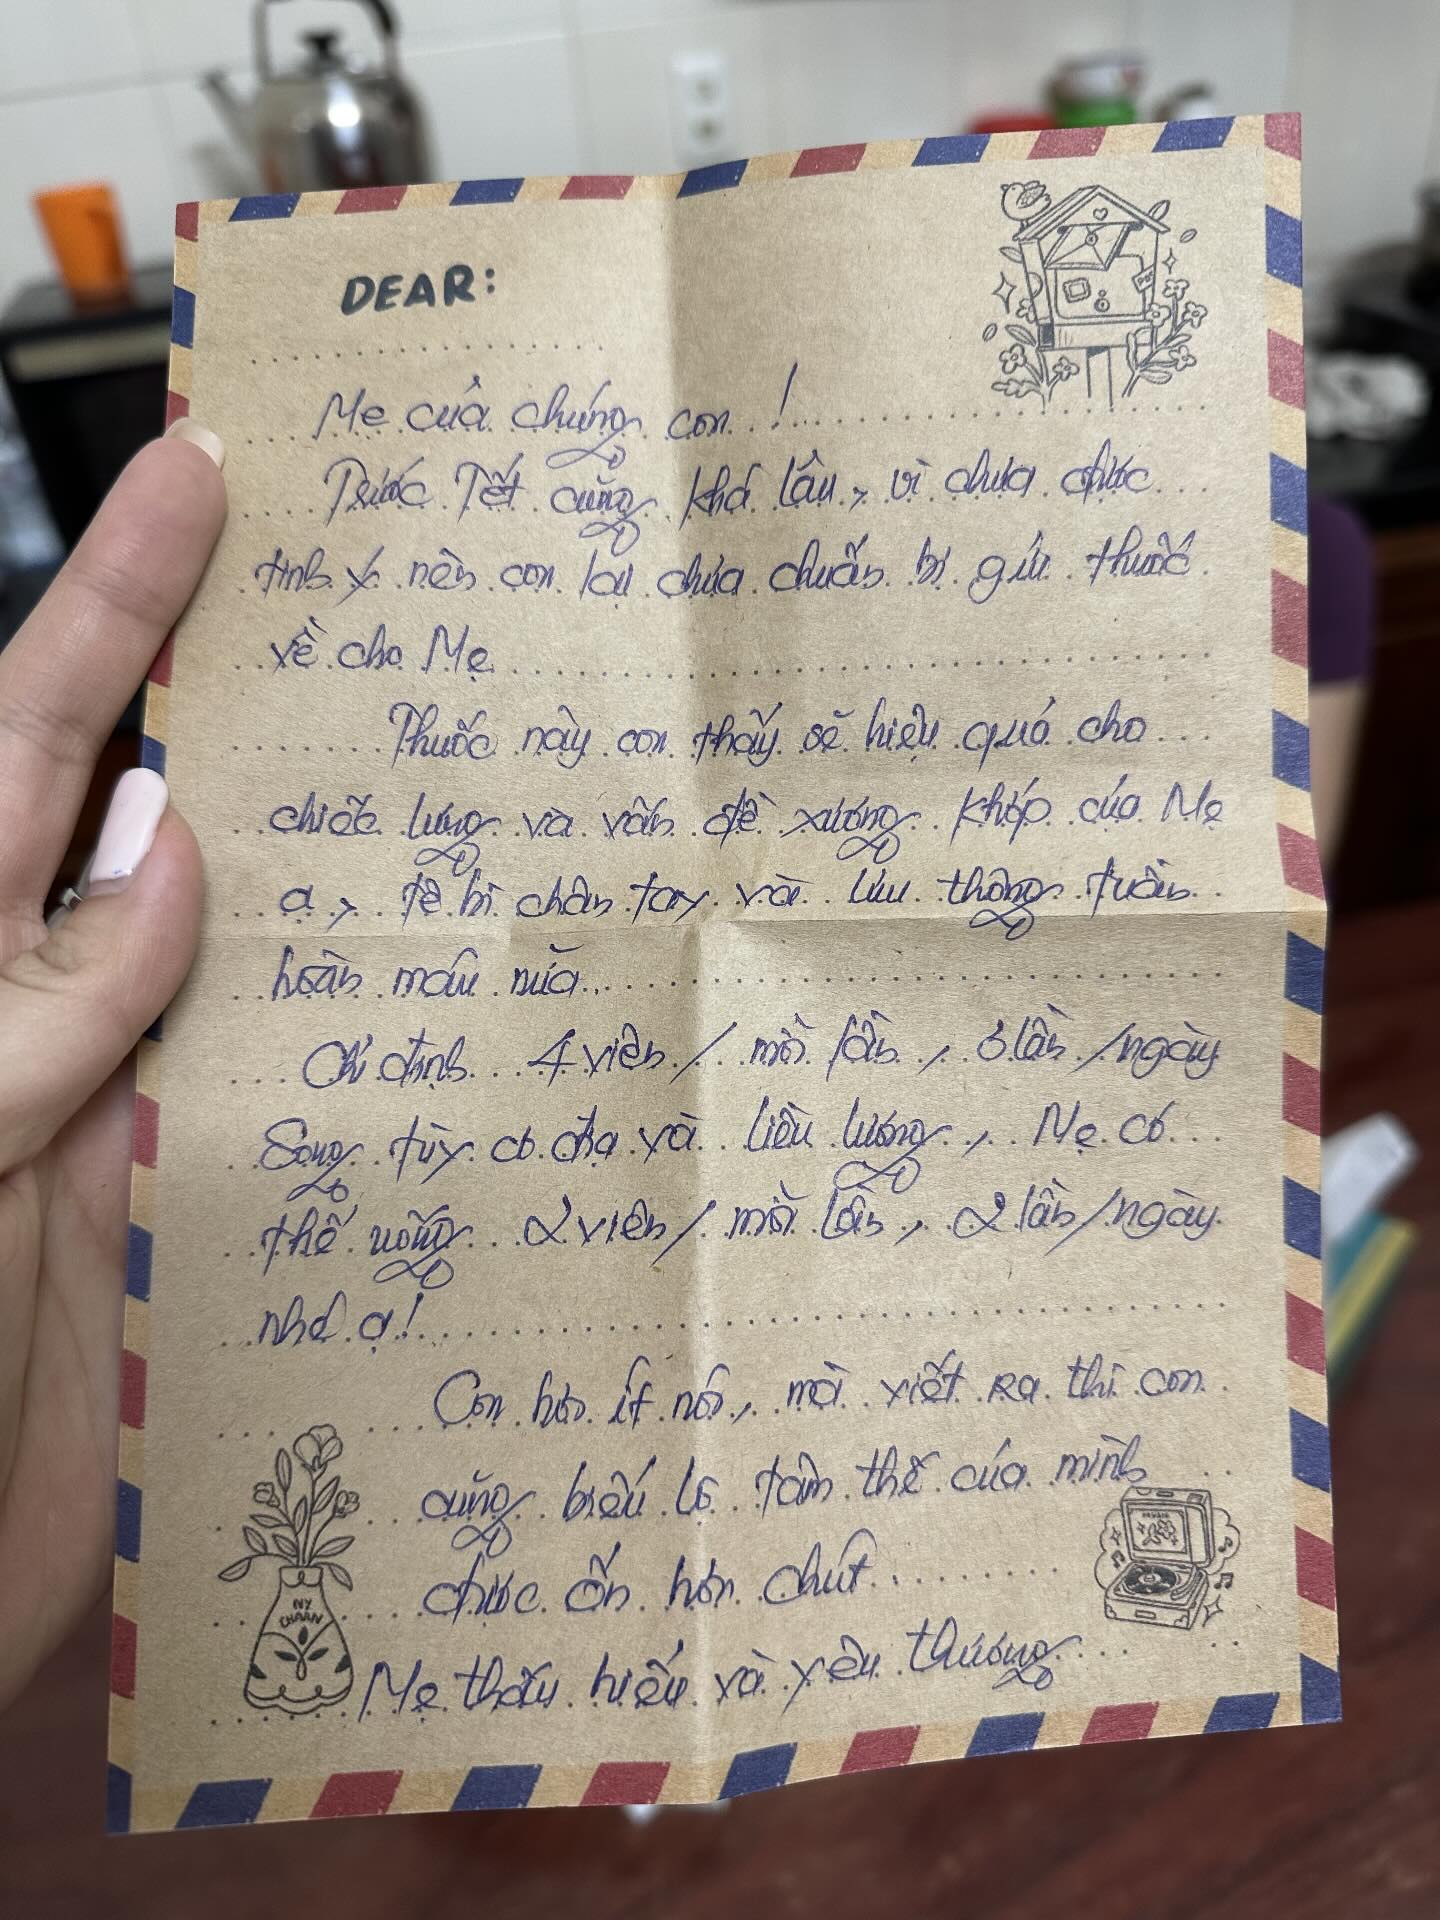 DEAR:
Mẹ của chúng con !
Trước Tết cũng khá lâu, vì chưa được
tinh ý nên con lại chưa chuẩn bị gửi thuốc
về cho Mẹ
Thuốc này con thấy sẽ hiệu quả cho
chiếc lưng và vấn đề xương khớp của Mẹ
ạ, tê bì chân tay và lưu thông tuần
hoàn máu nữa.
Chỉ định 4 viên / mỗi lần, 3 lần /ngày
Song tùy cơ địa và liều lượng, Mẹ có
thể uống 2 viên / mỗi lần, 2 lần /ngày
nhé ạ!
Con hơi ít nói, mà viết ra thì con
cũng biểu lộ tâm thế của mình
được ổn hơn chút
NY
CHAAN
Mẹ thấu hiểu và yêu thương